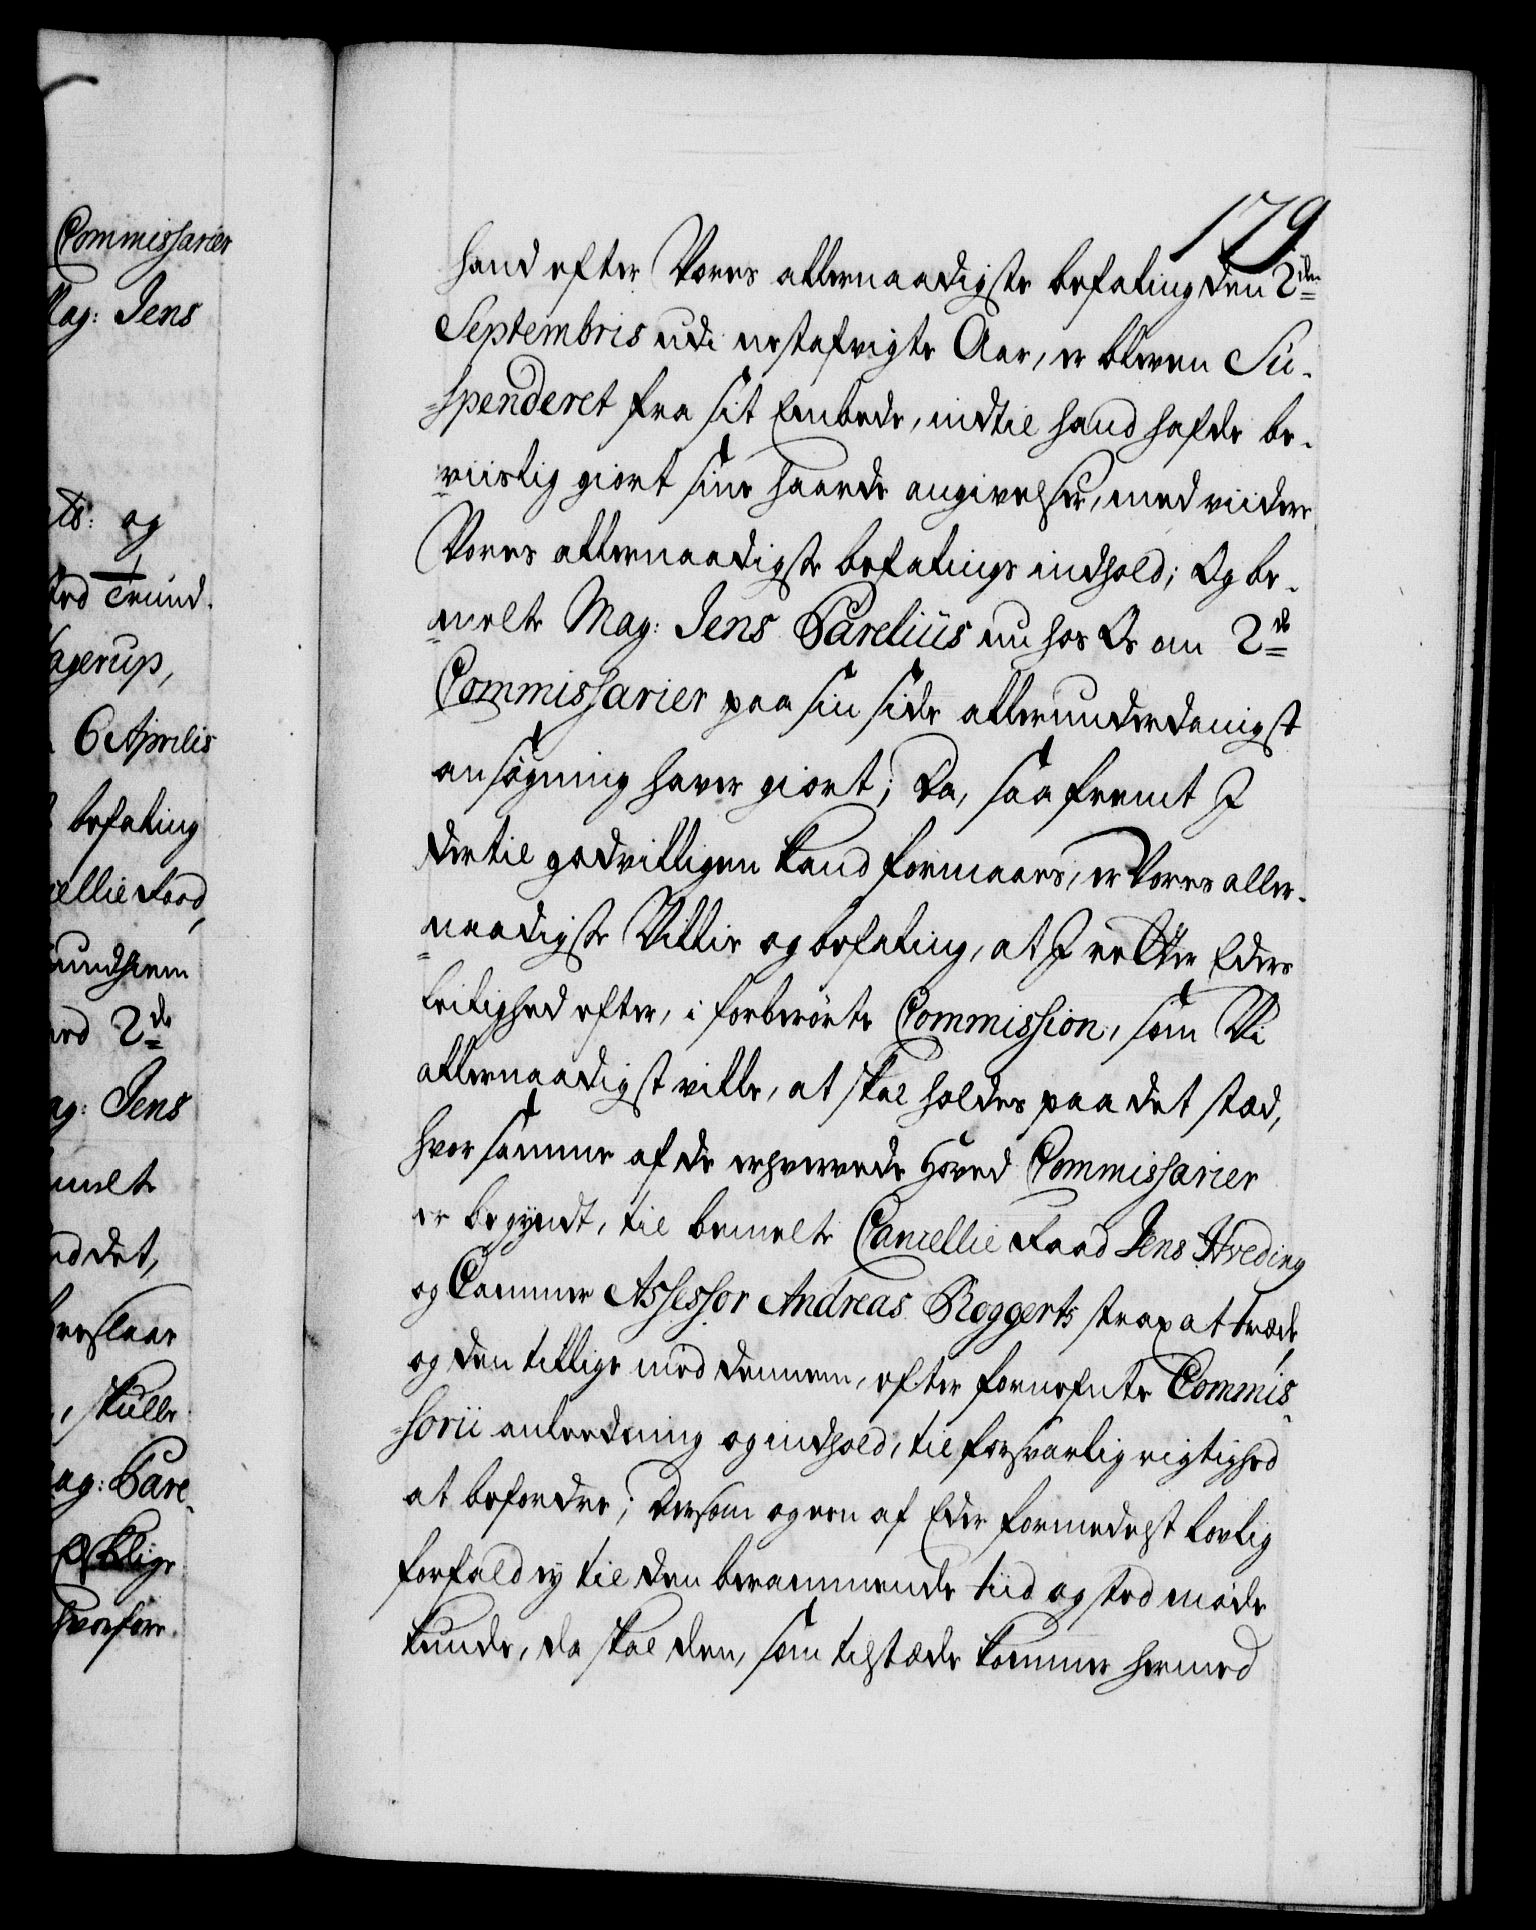 Commissarier
Mag: Jens
og
Trund.
Hagerup,
6 Aprilis
befaling
Cancellie Raad,
2de
Mag: Jens
melte
det,
skulle
Mag: Pare-
hvorfore
179
hand efter Vores allernaadigste befaling den 2den
Septembris udi nestafvigte Aar, er bleven Su-
-spenderet fra sit Embede, indtil hand hafde be-
-viislig giort sine haarde angivelser, med viidere
Vores allernaadigste befalings indhold; Og be-
-melte Mag: Jens Parelius nu hos Os om 2de
Commissarier paa sin side allerunderdanigst
ansøgning haver giort; Da, saafremt I
dertil godvilligen kand formaaes, er Vores aller-
-naadigste Villie og befaling, at I retter Eders
leilighed efter, i forberørte Commission, som Vi
allernaadigst ville, at skal holdes paa det stæd,
hvor samme af de erhvervede Hoved Commissarier
er begyndt, til bemelte Cancellie Raad Jens Hveding
og Cammer Assessor Andreas Roggerts strax at træde,
og den tillige med dennem, efter fornefnte Commis-
-sorii anledning og indhold, til forsvarlig rigtighed
at befordre; Dersom ogeen af Eder formedelst lovlig
forfald ey til den berammende tiid og sted møde
kunde, da skal den, som tilstæde kommer hermed